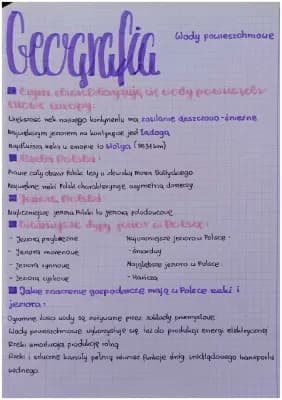 Geografia
Wody powierzchniowe
Czym charakteryzują się wody powierzch-
niowe Europy:
Większość rzek naszego kontynentu ma zasilanie deszczowo-śnieżne
Największym jeziorem na kontynencie jest Ładoga
Najdłuższa rzeka w Europie to Wołga (3531km)
Rzeki Polski:
Prawie cały obszar Polski leży w zlewisku Morza Bałtyckiego
Największe rzeki Polski charakteryzuje asymetria dorzeczy
Jeziora Polski
Najliczniejsze jeziora Polski to jeziora polodowcowe
Ważniejsze typy jezior w Polsce:
- Jeziora przybrzeżne
Największe jezioro w Polsce
- Jeziora morenowe
- Śniardwy
- Jeziora rynnowe
Najgłębsze jezioro w Polsce
- Jeziora cyrkowe
- Hańcza
Jakie znaczenie gospodarcze mają w Polsce rzeki i
jeziora:
Ogromne ilości wody są zużywane przez zakłady przemysłowe
Wody powierzchniowe wykorzystuje się też do produkcji energii elektrycznej
Rzeki umożliwiają produkcję rolną
Rzeki i sztuczne kanały pełnią również funkcję dróg śródlądowego transportu
wodnego.